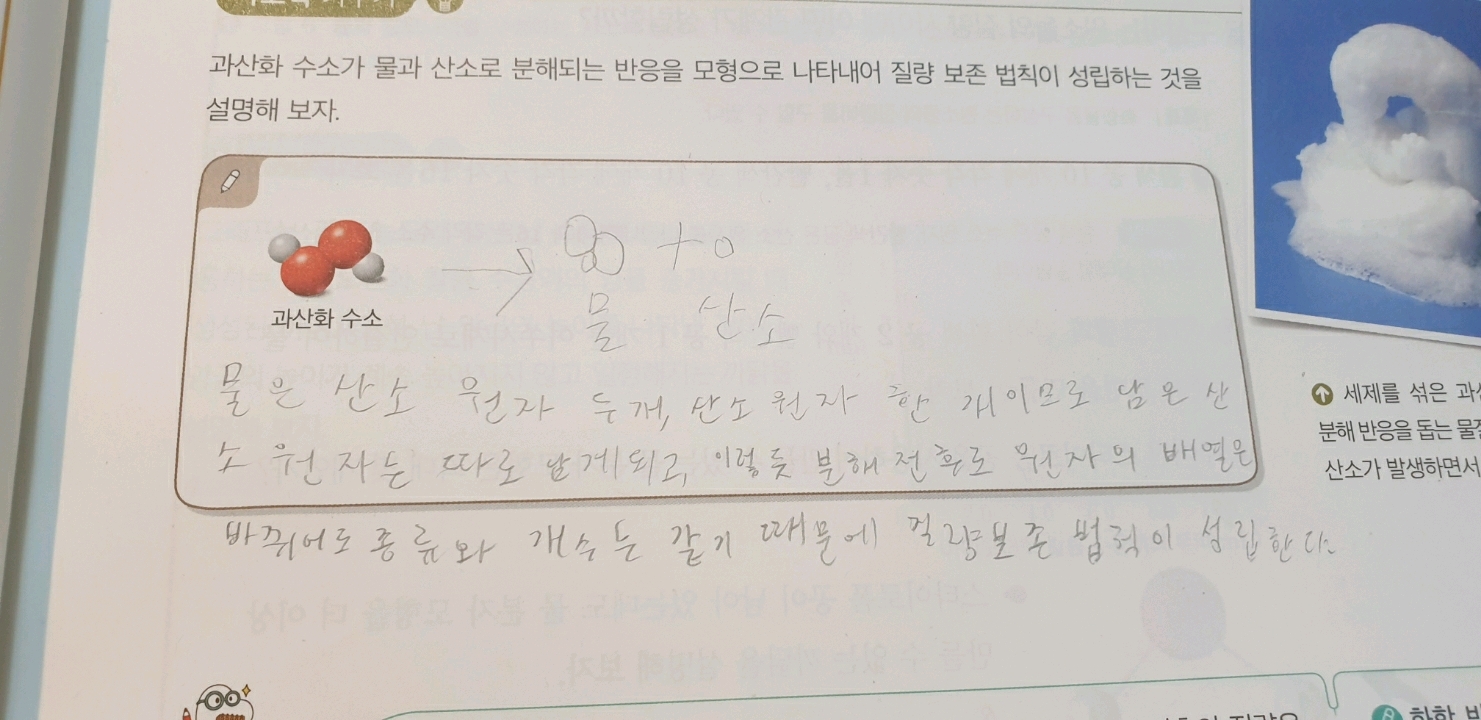 과산화 수소가 물과 산소로 분해되는 반응을 모형으로 나타내어 질량 보존 법칙이 성립하는 것을
설명해 보자.
+
물 산소
과산화 수소
물은 산소 원자 두개, 산소 원자 한 개이므로 남은 산
소 원자는 따로 남게되고, 이렇듯 분해 전후로 원자의 배열은
바뀌어도 종류와 개수는 같기 때문에 질량보존 법칙이 성립한다.
세제를 섞은 과산
분해 반응을 돕는 물질
산소가 발생하면서